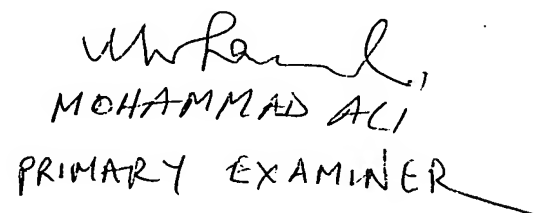 MOHAMMAD ALI
PRIMARY EXAMINER